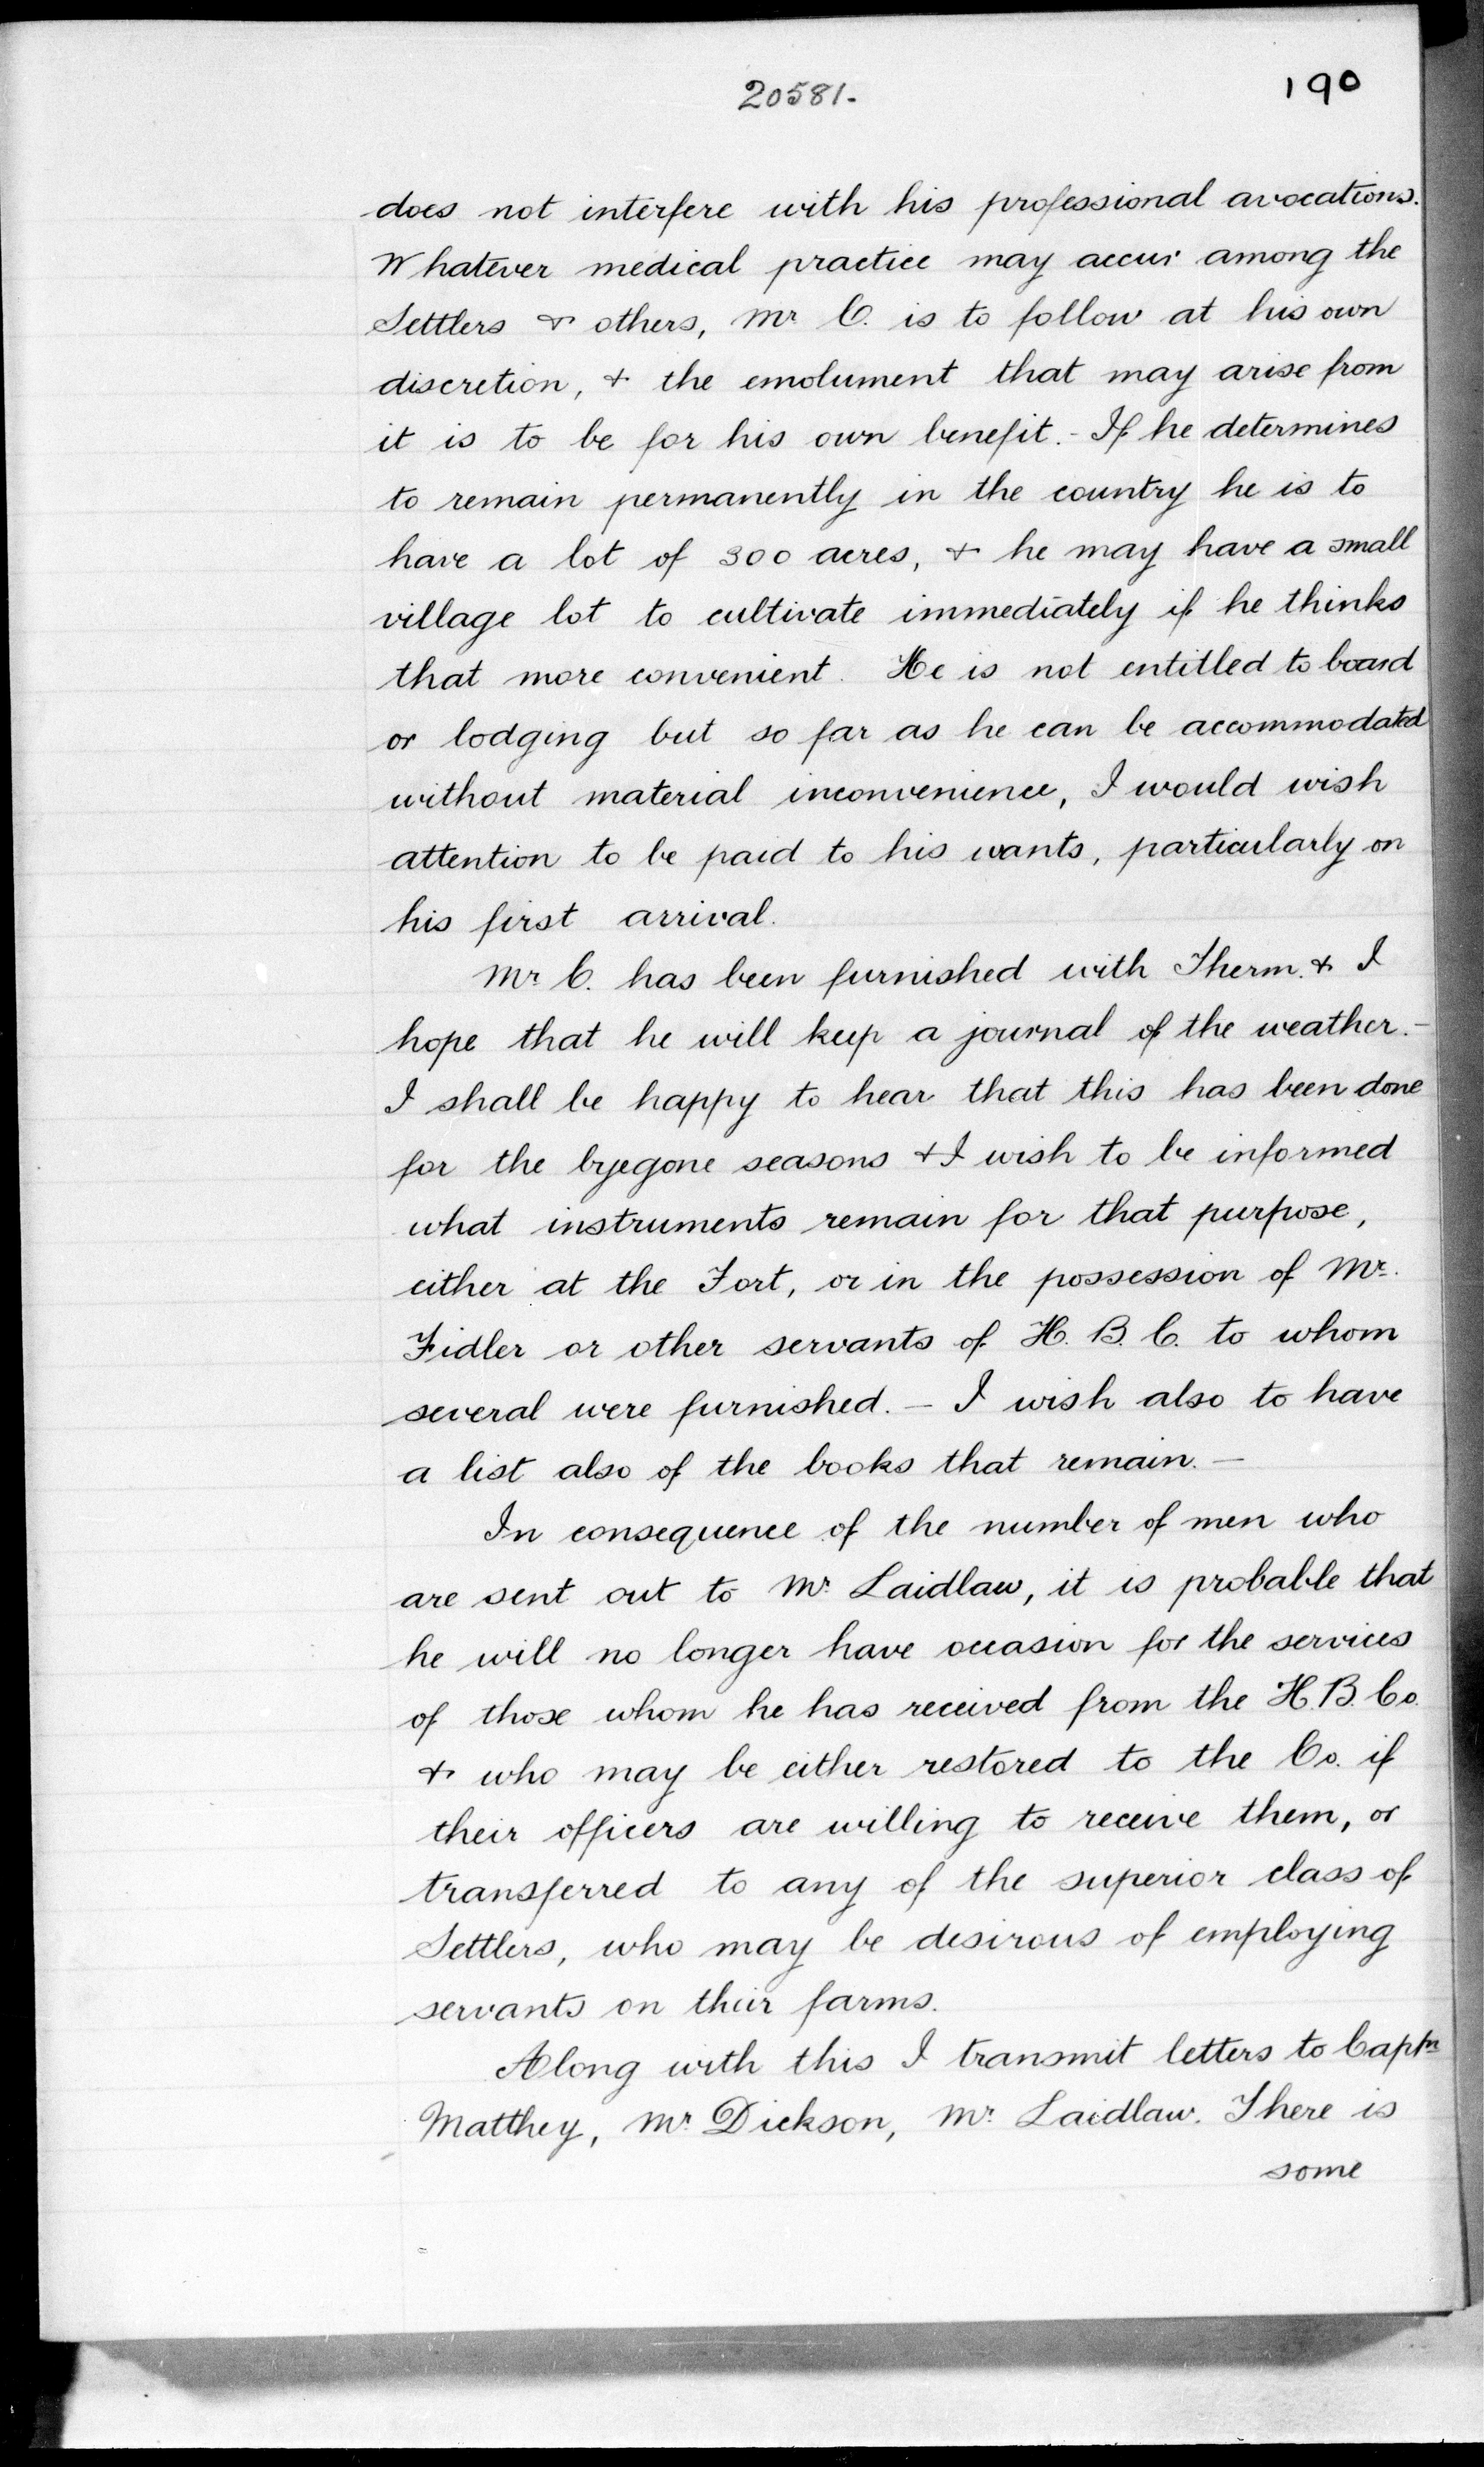 20581.
190
does not interfere with his professional avocations.
Whatever medical practice may accur among the
Settlers & others, Mr C. is to follow at his own
discretion, & the emolument that may arise from
it is to be for his own benefit. - If he determines
to remain permanently in the country he is to
have a lot of 300 acres, & he may have a small
village lot to cultivate immediately if he thinks
that more convenient. He is not entitled to board
or lodging but so far as he can be accommodated
without material inconvenience, I would wish
attention to be paid to his wants, particularly on
his first arrival.
Mr C. has been furnished with Therm. & I
hope that he will keep a journal of the weather. -
I shall be happy to hear that this has been done
for the byegone seasons & I wish to be informed
what instruments remain for that purpose,
either at the Fort, or in the possession of Mr.
Fidler or other servants of H. B. C. to whom
several were furnished. - I wish also to have
a list also of the books that remain. -
In consequence of the number of men who
are sent out to Mr. Laidlaw, it is probable that
he will no longer have occasion for the services
of those whom he has received from the H. B. Co.
& who may be either restored to the Co. if
their officers are willing to receive them, or
transferred to any of the superior class of
Settlers, who may be desirous of employing
servants on their farms.
Along with this I transmit letters to Captn
Matthey, Mr. Dickson, Mr. Laidlaw. There is
some